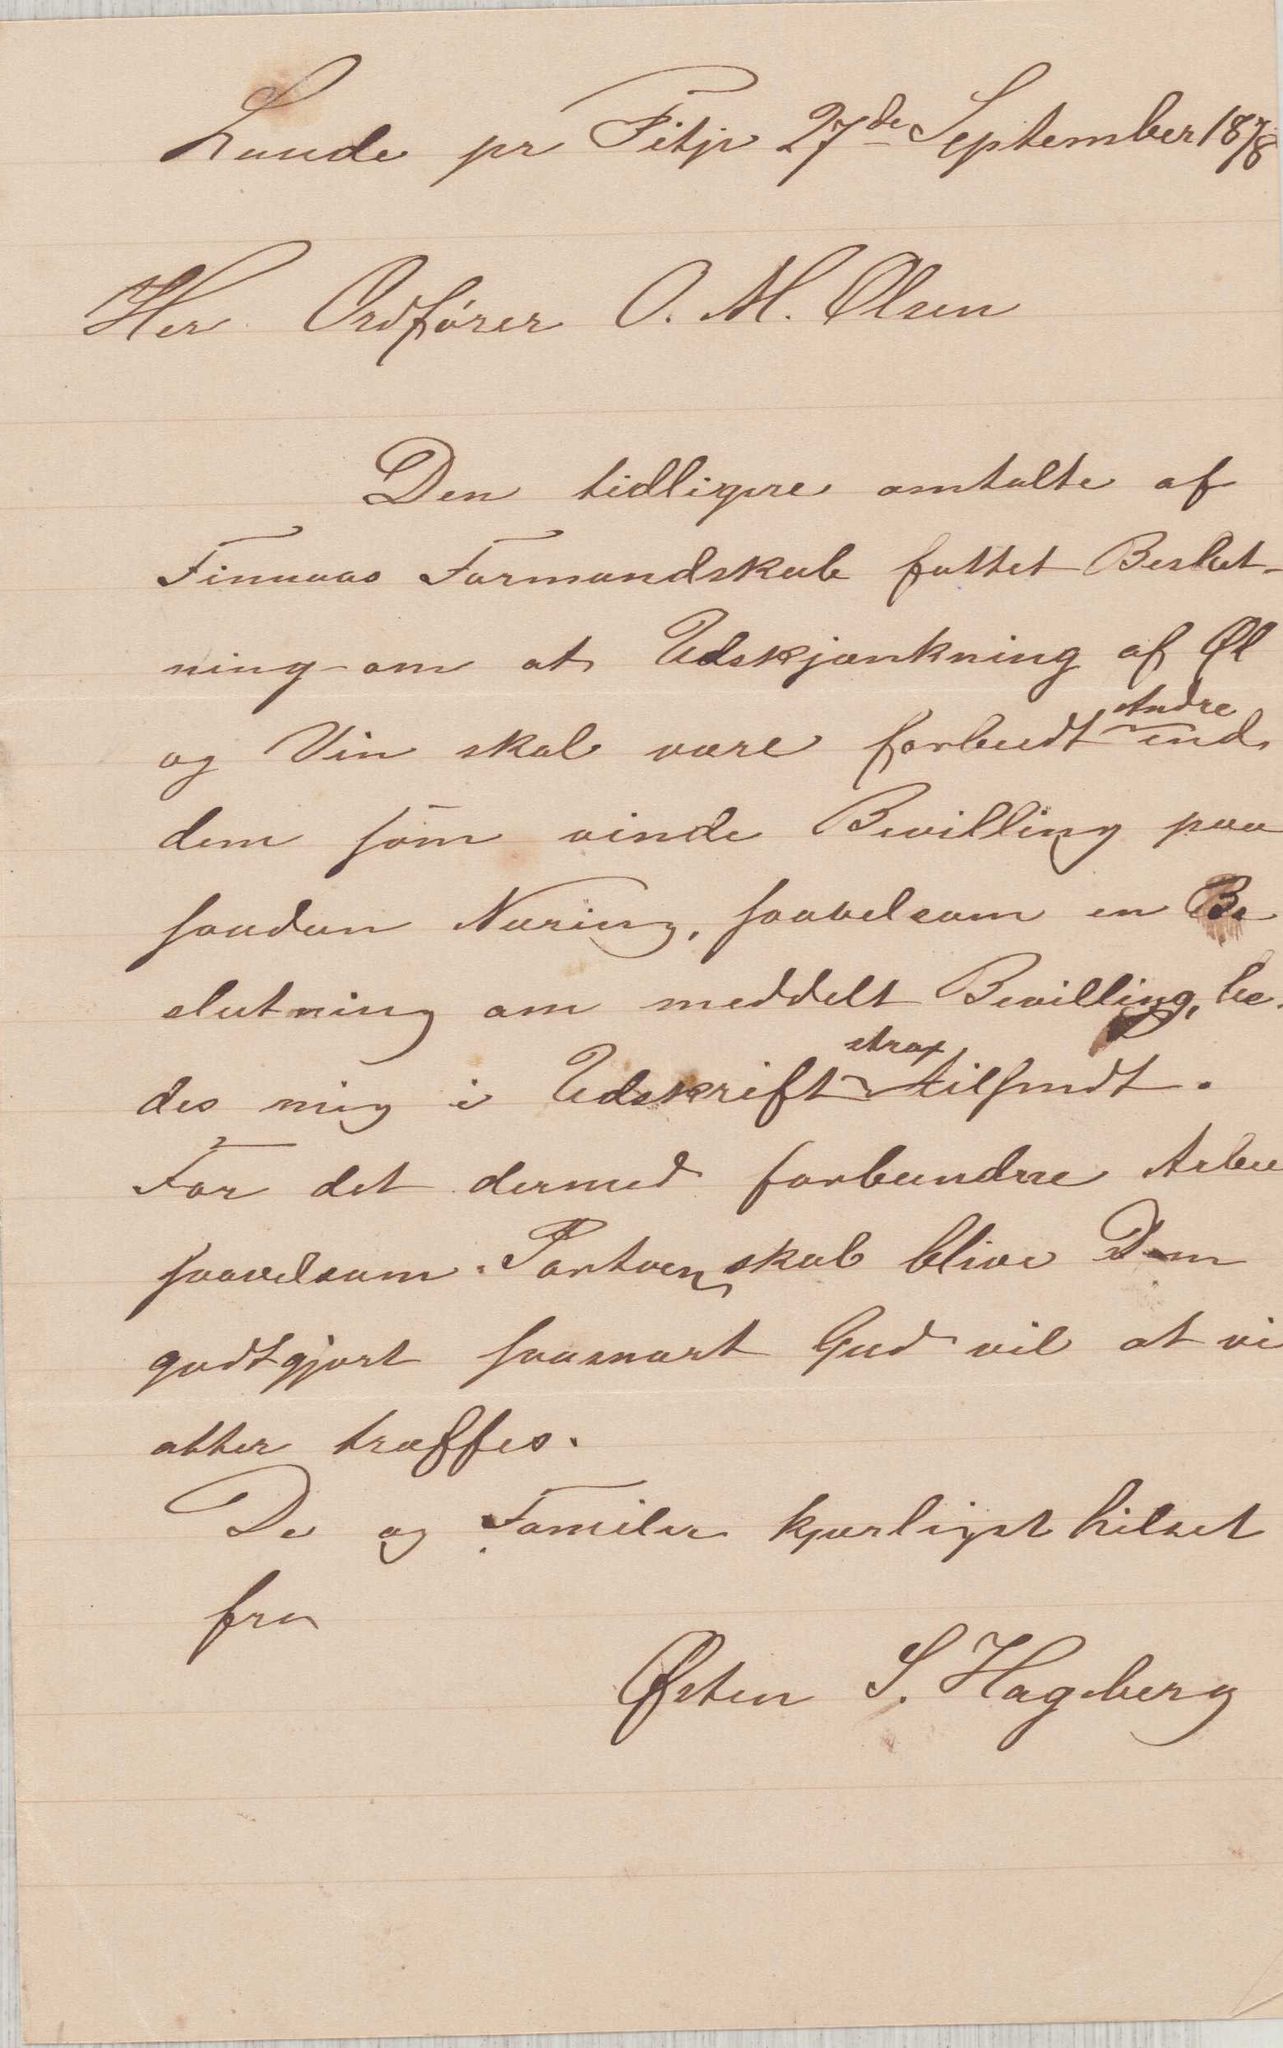 Lunde pr Fitje 27de September 1878
Her Ordfører O. M. Olsen
Den tidligere omtalte af
Finnaas Formandskab fattet Beslut-
ning om at Udskjænkning af Øl
og Vin skal være forbudt Andre end
dem som vinde Bevilling paa
saadan Næring, saavelsom en Be
slutning om meddelt Bevilling, be-
des mig i Udskrift strax tilsendt.
For det dermed forbundne Arbei
saavelsom Portoen skal blive Dem
godtgjort saasnart Gud vil at vi
atter træffes.
De og Familie kjærligst hilset
fra
Østen S. Hageberg